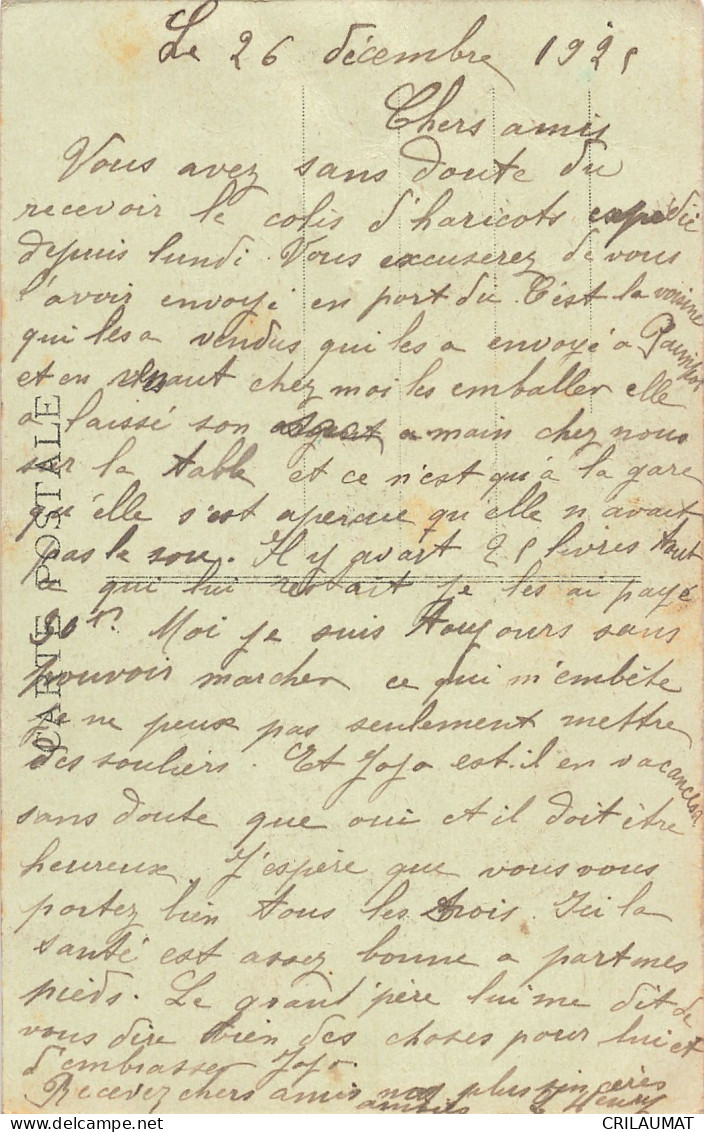 Le 26 décembre 1925
Chers amis
Vous avez sans doute du
recevoir le colis d'haricots expedié
depuis lundi. Vous excuserez de vous
l'avoir envoyé en port du. C'est la voisine
qui les a vendus qui les a envoyé a Paimpol
et en venant chez moi les emballer elle
a laissé son a main chez nous
sur la table et ce n'est qu'à la gare
qu'elle s'est apercue qu'elle n avait
pas le sou. Il y avait 25 livres tout
ce qui lui restait je les ai payé
50 fr. Moi je suis toujours sans
pouvoir marcher ce qui m'embête
je ne peux pas seulement mettre
des souliers. Et Jojo est-il en vacances
sans doute que oui et il doit être
heureux. J'espère que vous vous
portez bien tous les trois. Ici la
santé est assez bonne a part mes
pieds. Le grand'père lui me dit de
vous dire bien des choses pour lui et
d'embrasser Jojo.
Recevez chers amis nos plus sincères
amitiés Henry
CARTE POSTALE
CRILAUMAT